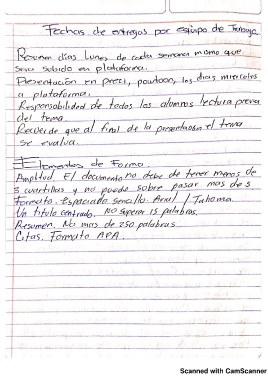 Fechas de entregas por equipo de Trabajo
Resumen días lunes de cada semana mismo que
sera subido en plataforma.
Presentación en prezi, powtoon, los dias miercoles
a plataforma.
Responsabilidad de todos los alumnos lectura previa
del tema.
Recuerde que al final de la presentación el tema
se evalua.
Elementos de Forma.
Amplitud. El documento no debe de tener menos de
3 cuartillas y no puede sobre pasar mas de 5
formato. Espaciado sencillo. Arial / Tahoma.
Un titulo centrado. no superar 15 palabras.
Resumen. No mas de 250 palabras.
Citas. Formato APA.
Scanned with CamScanner